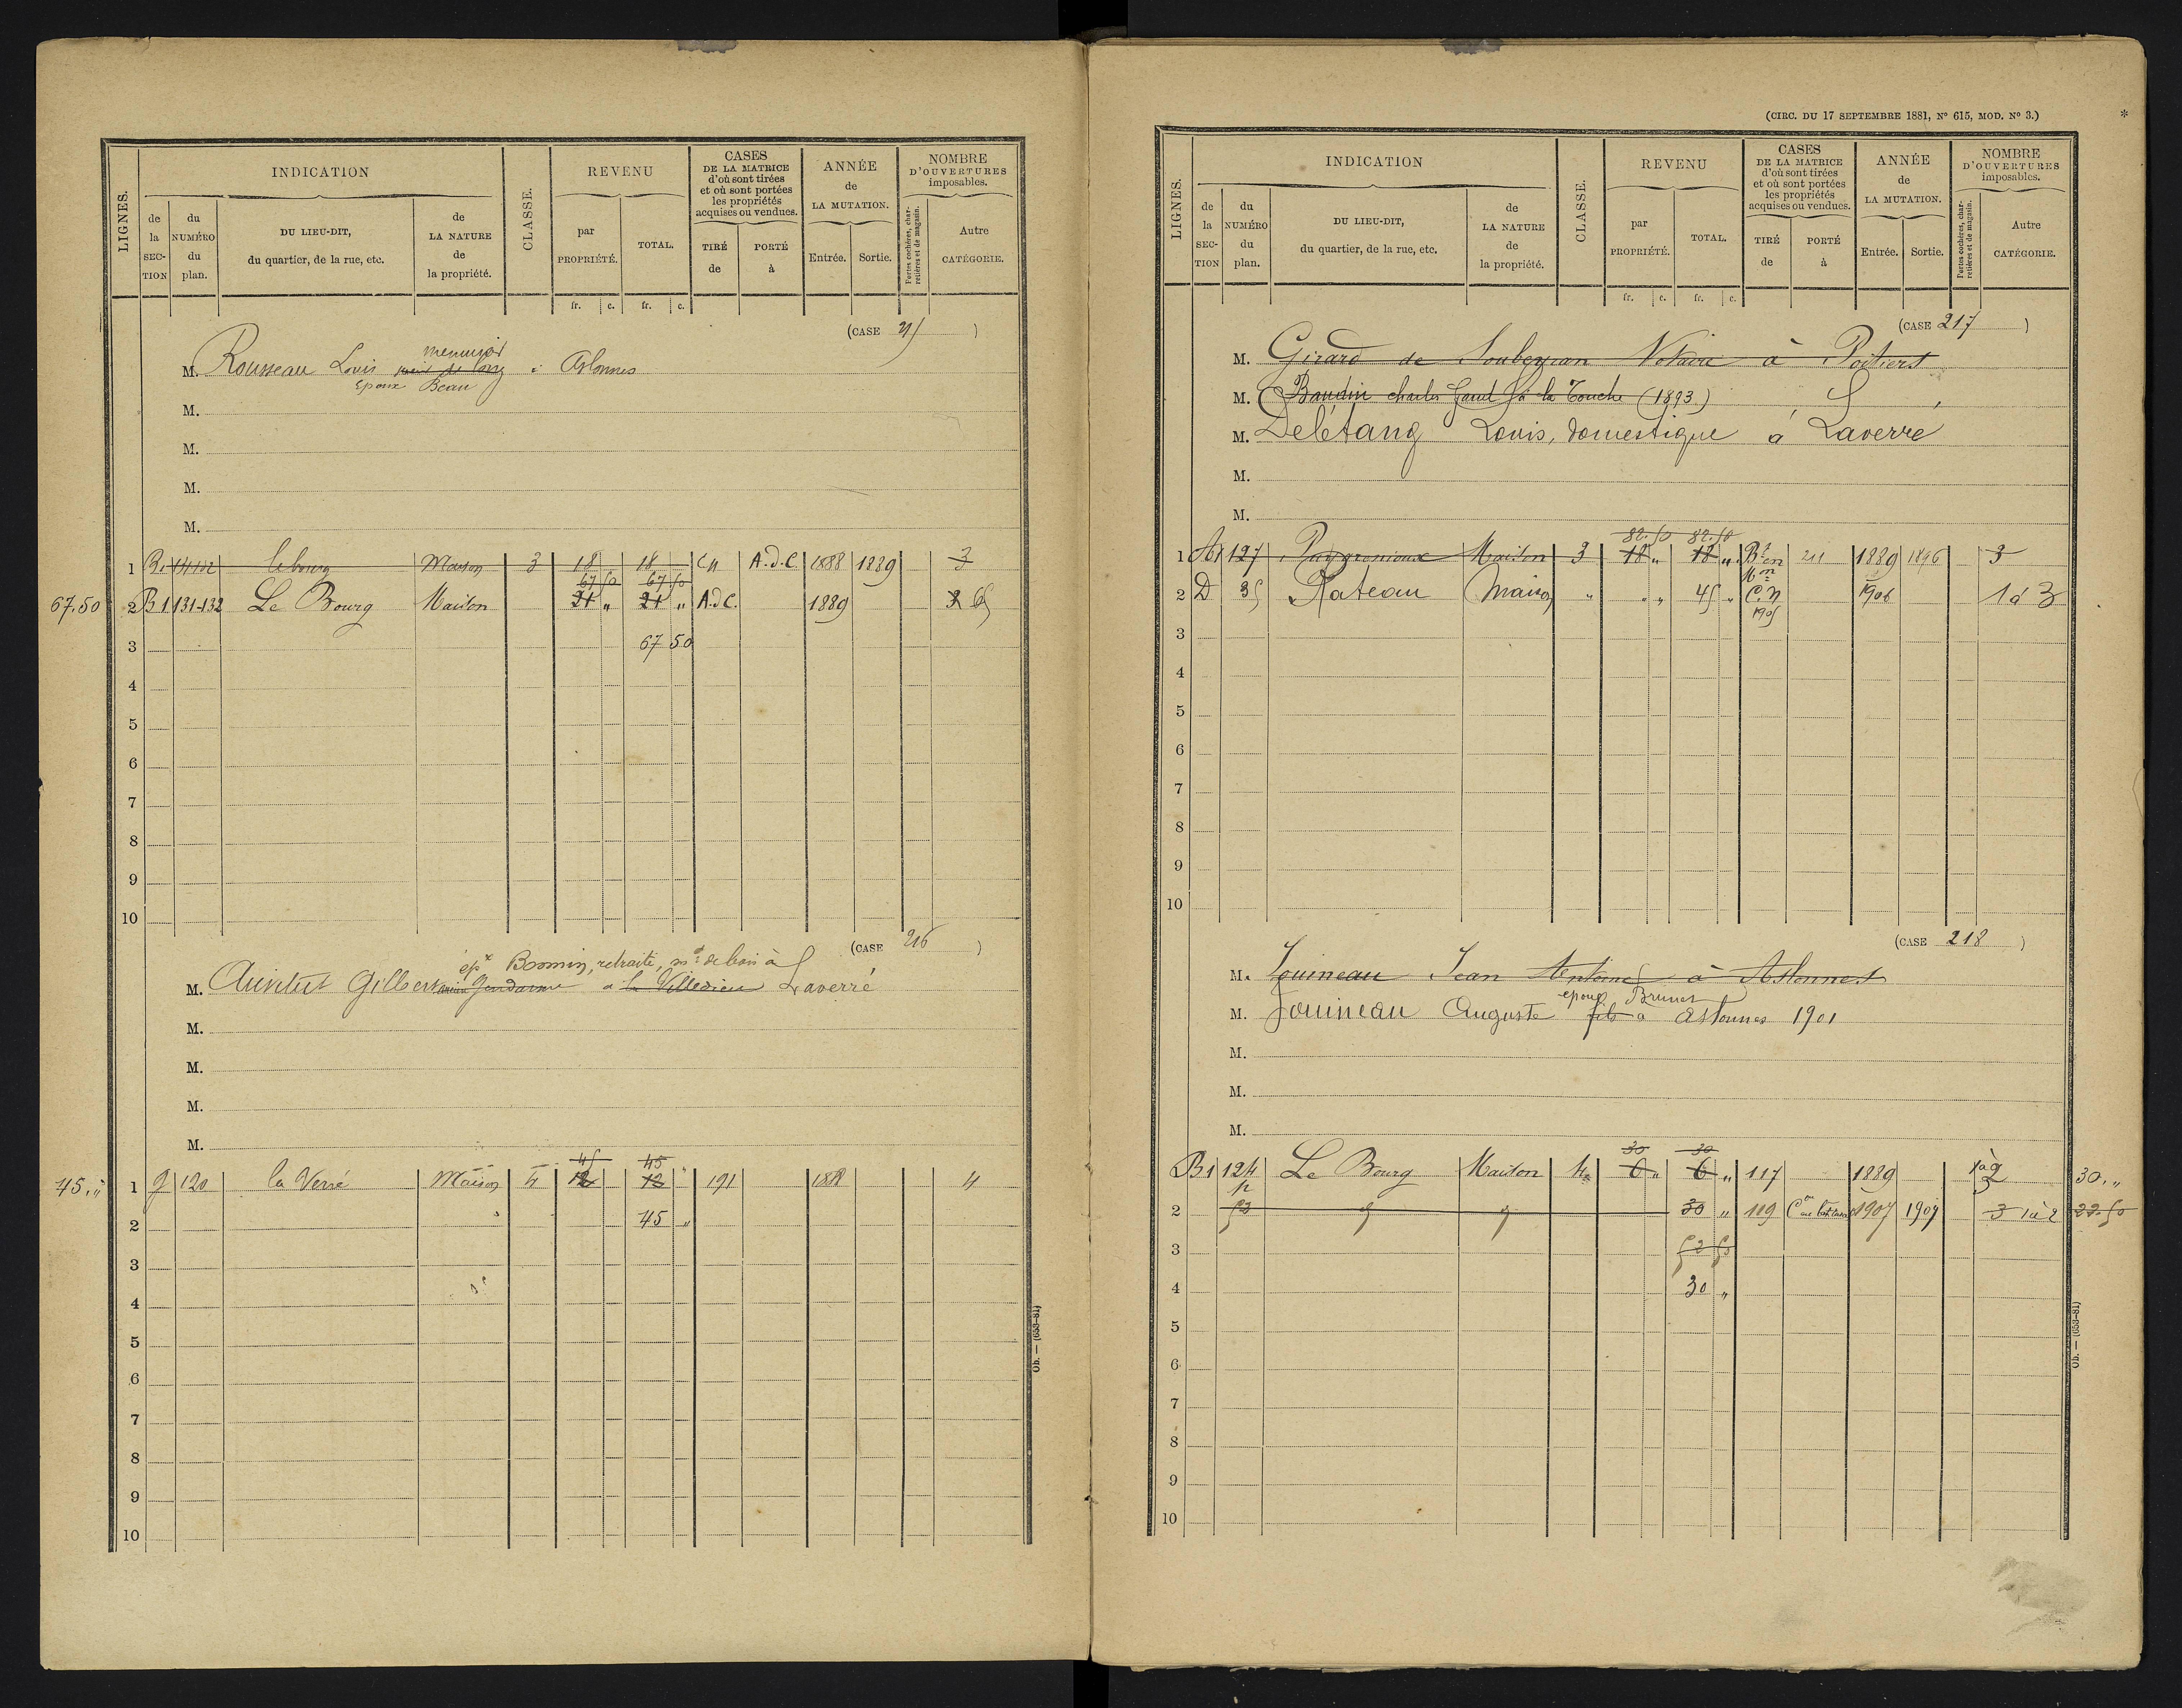 LIGNES.
INDICATION
de la SECTION
du NUMÉRO du plan.
DU LIEU-DIT, du quartier, de la rue, etc.
de LA NATURE de la propriété.
CLASSE.
REVENU
par PROPRIÉTÉ.
TOTAL.
CASES DE LA MATRICE d'où sont tirées et où sont portées les propriétés acquises ou vendues.
TIRÉ de
PORTÉ à
ANNÉE de LA MUTATION.
Entrée.
Sortie.
NOMBRE D'OUVERTURES imposables.
Portes cochères, charretières et de magasin.
Autre CATÉGORIE.
fr. c. fr. c.
(CASE 215 )
menuisier
M. Rousseau Louis à Aslonnes
Epoux Beau
M.
M.
M.
M.
1 B1 131-132 le bourg Maison 3 18 18 CN A.d.C. 1888 1889 3
67 50 67 50
67.50 2 B1 131-132 Le Bourg Maison 21 " 21 " A.d.C. 1889
3 67 50
4
5
6
7
8
9
10
(CASE 216 )
épx Bonnin, retraité, md de bois à
M. Gilbert ancien gendarme a la Villedieu Laverré
M.
M.
M.
M.
45 45 "
45. " 1 G 120 la Verré Maison 4 12 12 " 191 188 4
2 45 "
3
4
5
6
7
8
9
10
Ob. — (653-81)
(CIRC. DU 17 SEPTEMBRE 1881, N° 615, MOD. N° 3.)
*
LIGNES.
INDICATION
de la SECTION
du NUMÉRO du plan.
DU LIEU-DIT, du quartier, de la rue, etc.
de LA NATURE de la propriété.
CLASSE.
REVENU
par PROPRIÉTÉ.
TOTAL.
CASES DE LA MATRICE d'où sont tirées et où sont portées les propriétés acquises ou vendues.
TIRÉ de
PORTÉ à
ANNÉE de LA MUTATION.
Entrée.
Sortie.
NOMBRE D'OUVERTURES imposables.
Portes cochères, charretières et de magasin.
Autre CATÉGORIE.
fr. c. fr. c.
(CASE 217 )
M. Girard de Soubeyran Notaire à Poitiers
M. Baudin charles à la Touche (1893)
M. Delétang Louis, domestique à Laverré
M.
M.
82.50 82.50
1 A1 127 Puygremioux Maison 3 18 " 18 " 211 1889 1896 3
2 D 35 Rateau Maison " " " 45 " C.N 1906 1 à 3
1905
3
4
5
6
7
8
9
10
(CASE 218 )
M. Jouineau Jean Antoine à Aslonnes
epoux Brunet
M. Jouineau Auguste fils à aslonnes 1901
M.
M.
M.
30 30
B1 124 Le Bourg Maison 4 6 " 6 " 117 1889 1 à 2 30. "
p
2 53 d d 30 " 119 1907 1909 3 1 à 2 22.50
3 52 50
4 30 "
5
6
7
8
9
10
Ob. — (653-81)